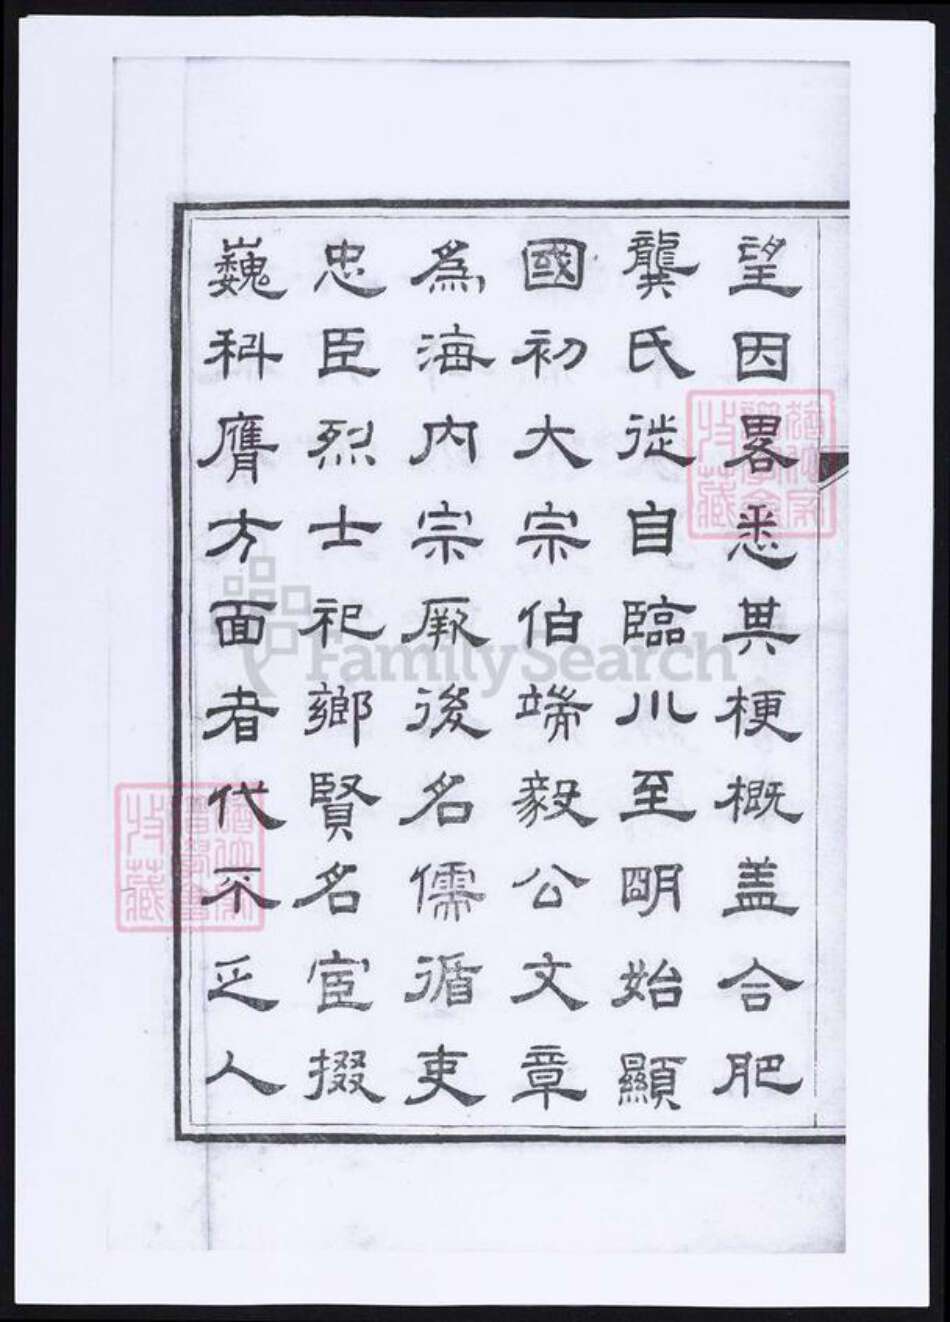 望因畧悉其梗概盖合肥
龔氏從自臨川至明始顯
國初大宗伯端毅公文章
為海内宗厥後名儒循吏
忠臣烈士祀鄉賢名宦掇
巍科膺方面者代不乏人
FamilySearch